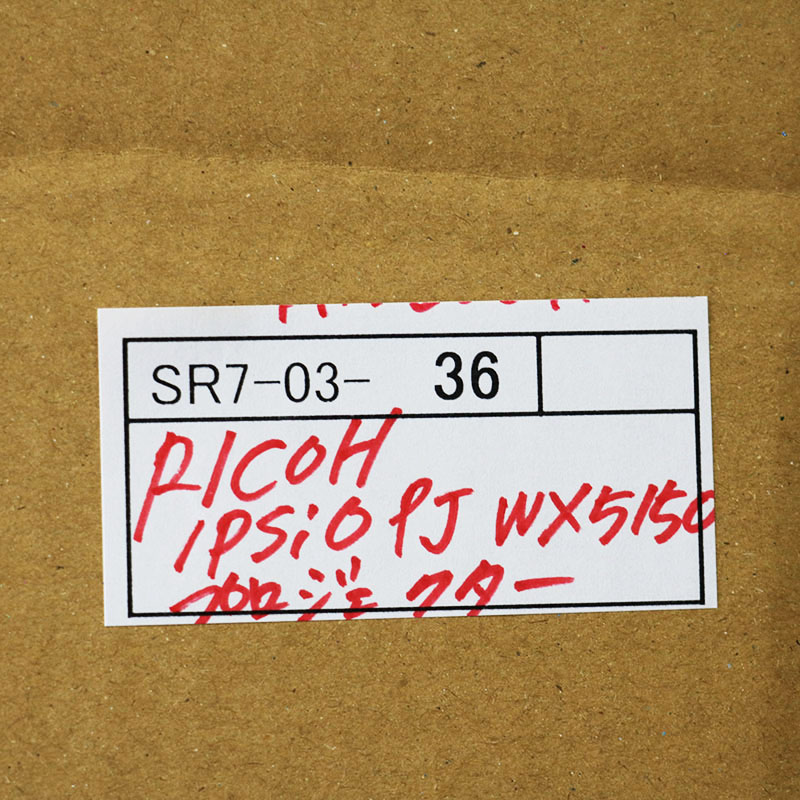 SR7-03- 36
RICOH
IPSiO PJ WX5150
プロジェクター